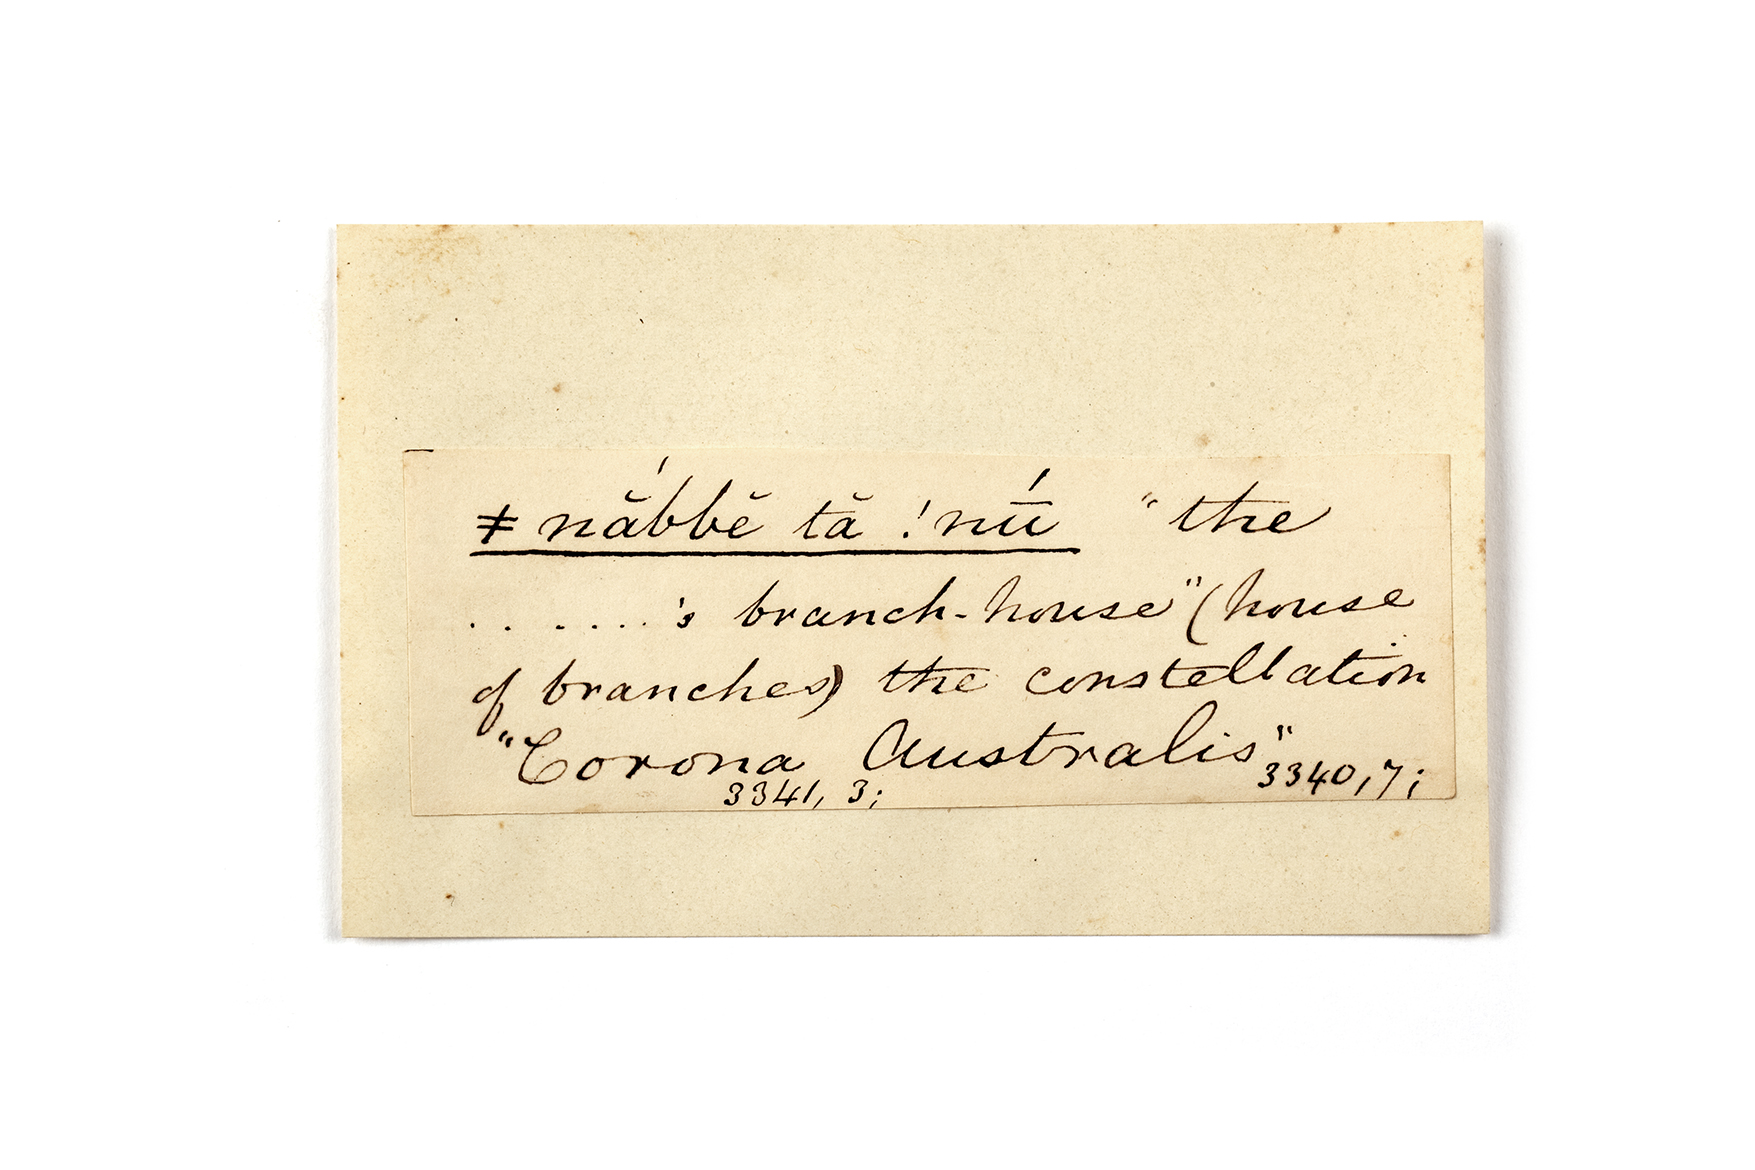 ǂnắbbĕ tă !nū́ "the
. . . . . . . 's branch-house" (house
of branches) the constellation
"Corona Australis" 3340, 7;
3341, 3;